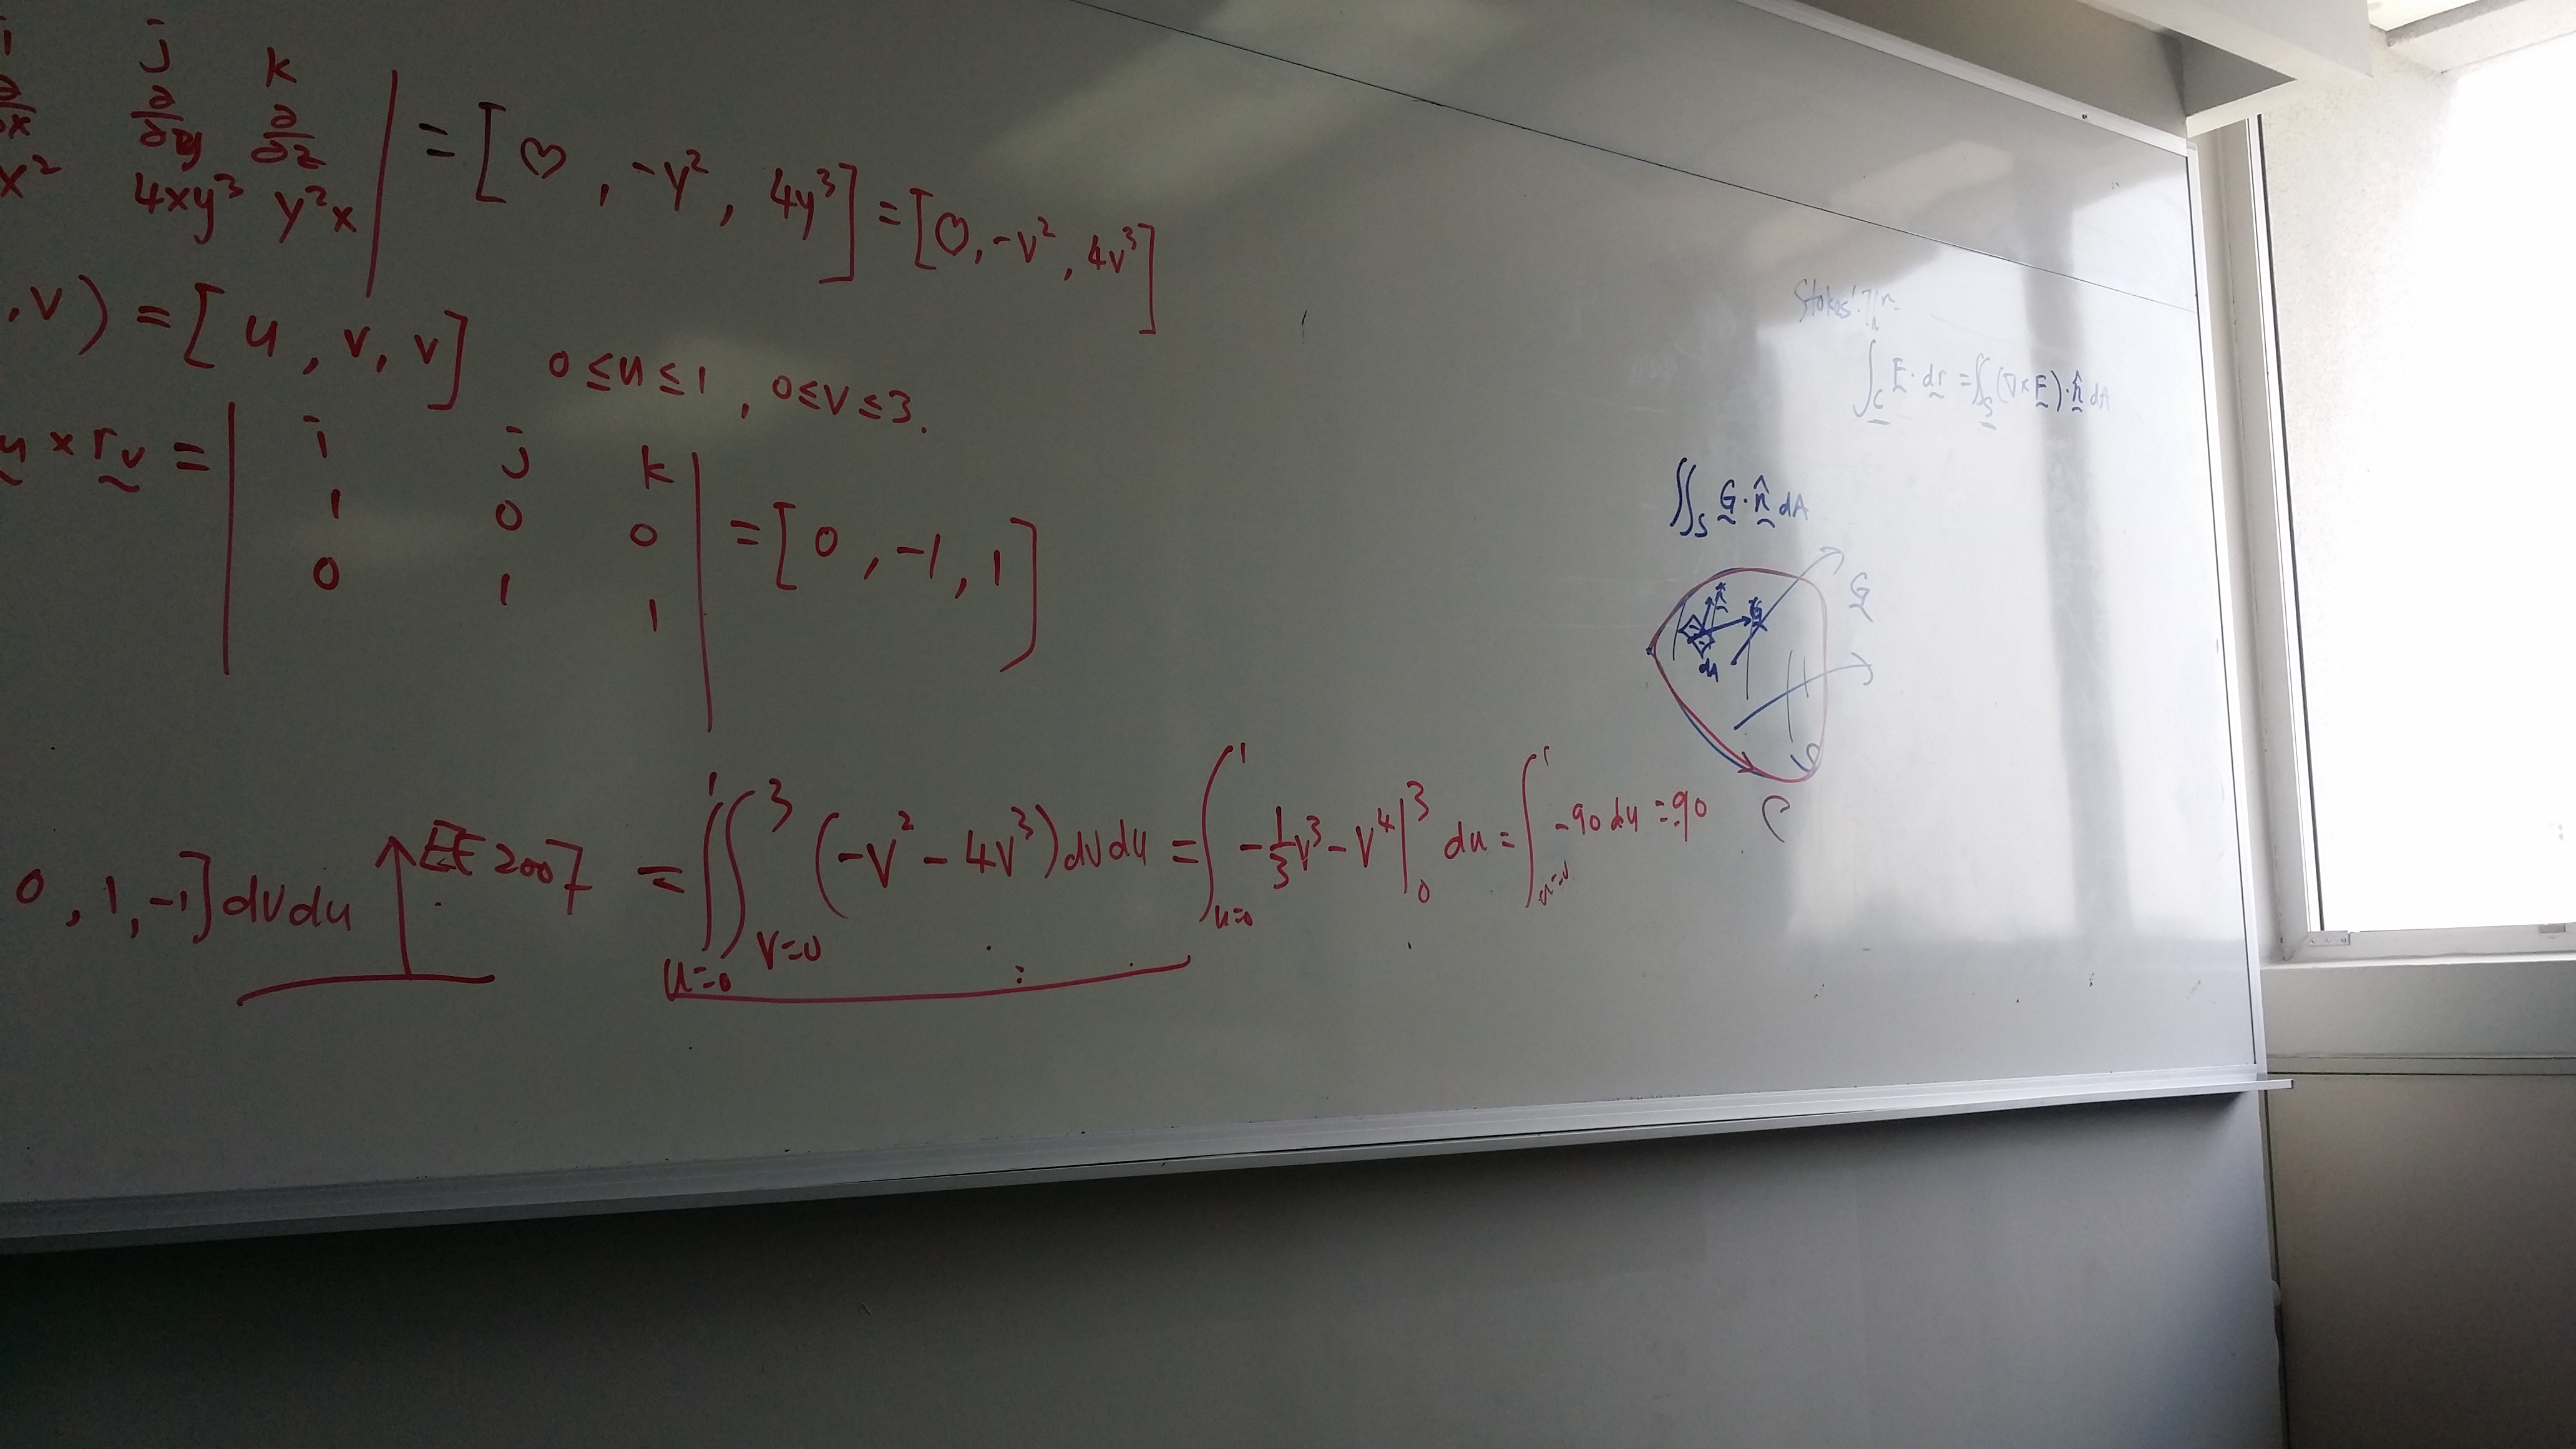 i j k
∂/∂x ∂/∂y ∂/∂z
x² 4xy³ y²x | = [♡, -y², 4y³] = [♡, -v², 4v³]
, v) = [u, v, v] 0≤u≤1, 0≤v≤3.
u × r_v = | i j k
1 0 0
0 1 1 | = [0, -1, 1]
0, 1, -1] dv du ↑ EE2007 = ∫_{u=0}^{1} ∫_{v=0}^{3} (-v² - 4v³) dv du = ∫_{u=0}^{1} -1/3 v³ - v⁴ |_0^3 du = ∫_{u=0}^{1} -90 du = -90
Stokes' Thm
∫_C F · dr = ∬_S (∇ × F) · n̂ dA
∬_S G · n̂ dA
n̂ G
dA
G
S
C